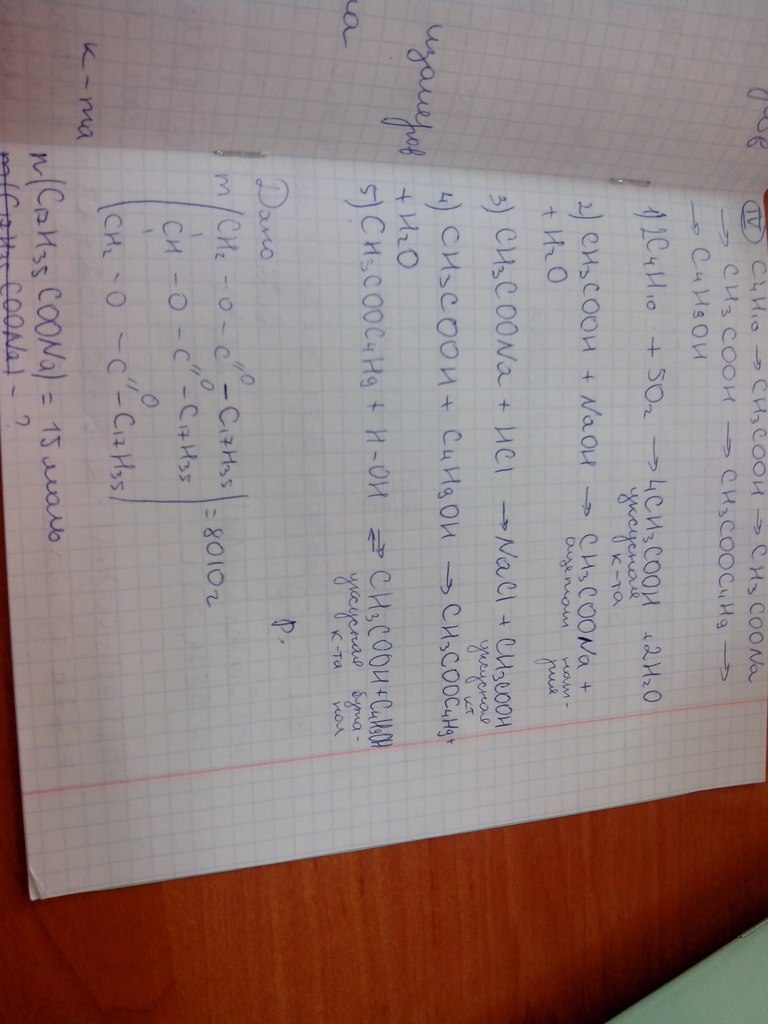 IV C4H10 → CH3COOH → CH3COONa
→ CH3COOH → CH3COOC4H9 →
→ C4H9OH
1) 2C4H10 + 5O2 → 4CH3COOH + 2H2O
уксусная
к-та
2) CH3COOH + NaOH → CH3COONa +
ацетат нат-
рия
+ H2O
3) CH3COONa + HCl → NaCl + CH3COOH
уксусная
кт
4) CH3COOH + C4H9OH → CH3COOC4H9 +
+ H2O
5) CH3COOC4H9 + H-OH ⇄ CH3COOH + C4H9OH
уксусная бута-
к-та нол
Дано:
Р.
m(CH2 - O - C=O - C17H35
CH - O - C=O - C17H35
CH2 - O - C=O - C17H35) = 8010г
n(C17H35COONa) = 15 моль
m(C17H35COONa) - ?
изомеров
к-та